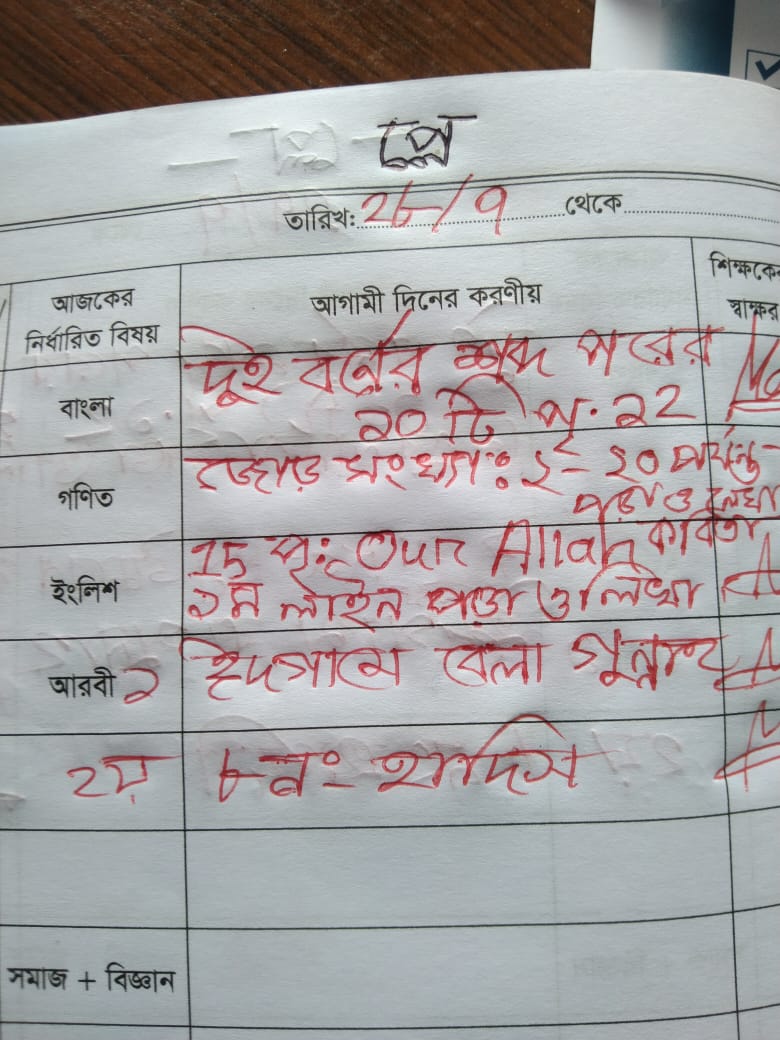 প্লে
তারিখ: ২৮/৭ থেকে
আজকের নির্ধারিত বিষয়
আগামী দিনের করণীয়
শিক্ষকের স্বাক্ষর
বাংলা
দুই বর্ণের শব্দ পরের
২০ টি পৃ. ২২
গণিত
জোড় সংখ্যা: ১- ২০ পর্যন্ত
পড়া ও লেখা
ইংলিশ
15 পৃ: Our Allah কবিতা
১ম লাইন পড়া ও লিখা
আরবী ১
ইদগামে বেলা গুন্নাহ
২য়
৮ নং হাদিস
সমাজ + বিজ্ঞান